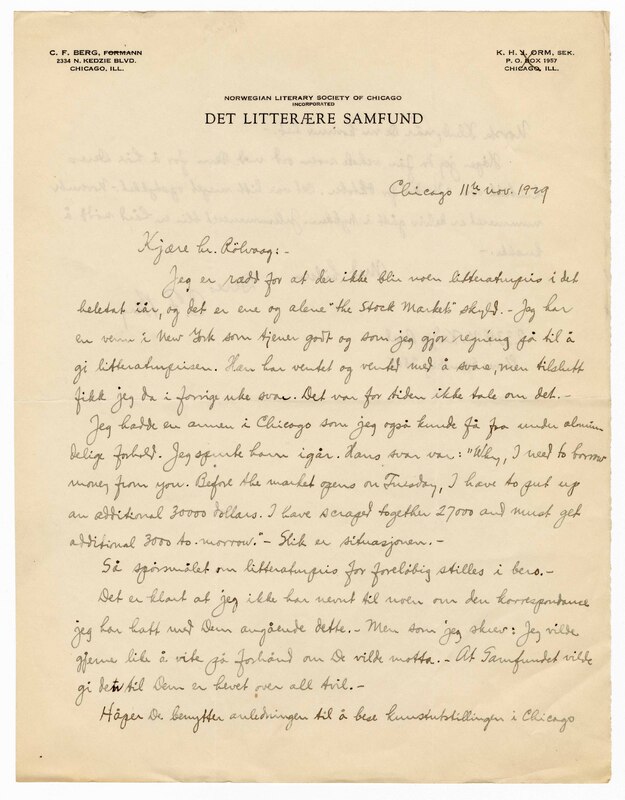 C. F. BERG, FORMANN
2334 N. KEDZIE BLVD.
CHICAGO, ILL.
K. H. V. ORM, SEK.
P. O. BOX 1957
CHICAGO, ILL.
NORWEGIAN LITERARY SOCIETY OF CHICAGO
INCORPORATED
DET LITTERÆRE SAMFUND
Chicago 11th nov. 1929
Kjære hr. Rölvaag:-
Jeg er rædd for at der ikke blir noen litteraturpris i det
heletat iår, og det er ene og alene "the Stock Market's" skyld. - Jeg har
en venn i New York som tjener godt og som jeg gjor regning på til å
gi litteraturprisen. Han har ventet og ventet med å svare, men tilslutt
fikk jeg da i forrige uke svar. Det var for tiden ikke tale om det. -
Jeg hadde en annen i Chicago som jeg også kunde få fra under almin
delige forhold. Jeg spurte ham igår. Hans svar var: "Why, I need to borrow
money from you. Before the market opens on Tuesday, I have to put up
an additional 30000 dollars. I have scraped together 27000 and must get
additional 3000 to-morrow." - Slik er situasjonen. -
Så spörsmålet om litteraturpris for foreløbig stilles i bero. -
Det er klart at jeg ikke har nevnt til noen om den korrespondance
jeg har hatt med Dem angående dette. - Men som jeg skrev: Jeg vilde
gjerne like å vite på forhånd om De vilde motta. - At Samfundet vilde
gi den til Dem er hevet over all tvil. -
Håper De benytter anledningen til å bese kunstutstillingen i Chicago